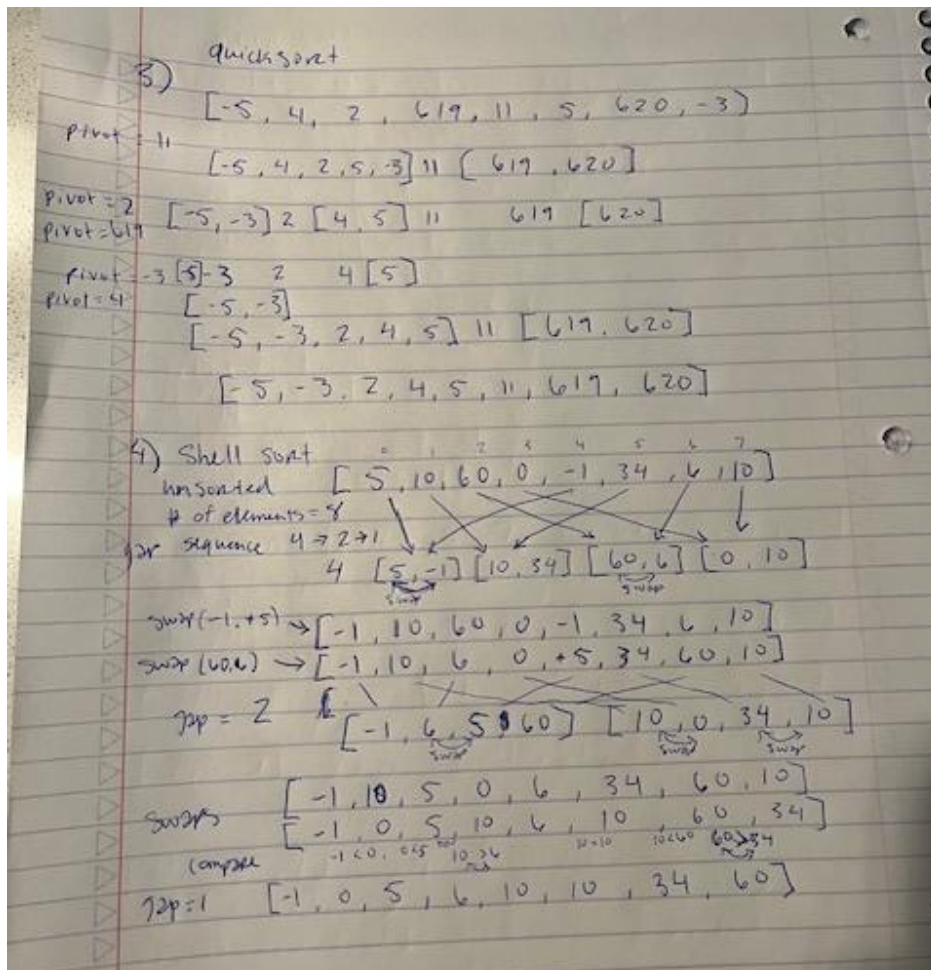 quicksort
3)
[-5, 4, 2, 619, 11, 5, 620, -3]
pivot = 11
[-5, 4, 2, 5, -3] 11 [619, 620]
pivot = 2 [-5, -3] 2 [4, 5] 11 619 [620]
pivot = 619
pivot = -3 [-5] -3 2 4 [5]
pivot = 4 [-5, -3]
[-5, -3, 2, 4, 5] 11 [619, 620]
[-5, -3, 2, 4, 5, 11, 619, 620]
0 1 2 3 4 5 6 7
4) Shell sort
unsorted [5, 10, 60, 0, -1, 34, 6, 10]
# of elements = 8
gap sequence 4 → 2 → 1
4 [5, -1] [10, 34] [60, 6] [0, 10]
swap swap
swap(-1, +5) → [-1, 10, 60, 0, -1, 34, 6, 10]
swap (60,6) → [-1, 10, 6, 0, +5, 34, 60, 10]
gap = 2 [-1, 6, 5, 60] [10, 0, 34, 10]
swap swap swap
[-1, 10, 5, 0, 6, 34, 60, 10]
swaps [-1, 0, 5, 10, 6, 10, 60, 34]
compare -1<0, 0<5 10>6 10=10 10<60 60>34
gap = 1 [-1, 0, 5, 6, 10, 10, 34, 60]